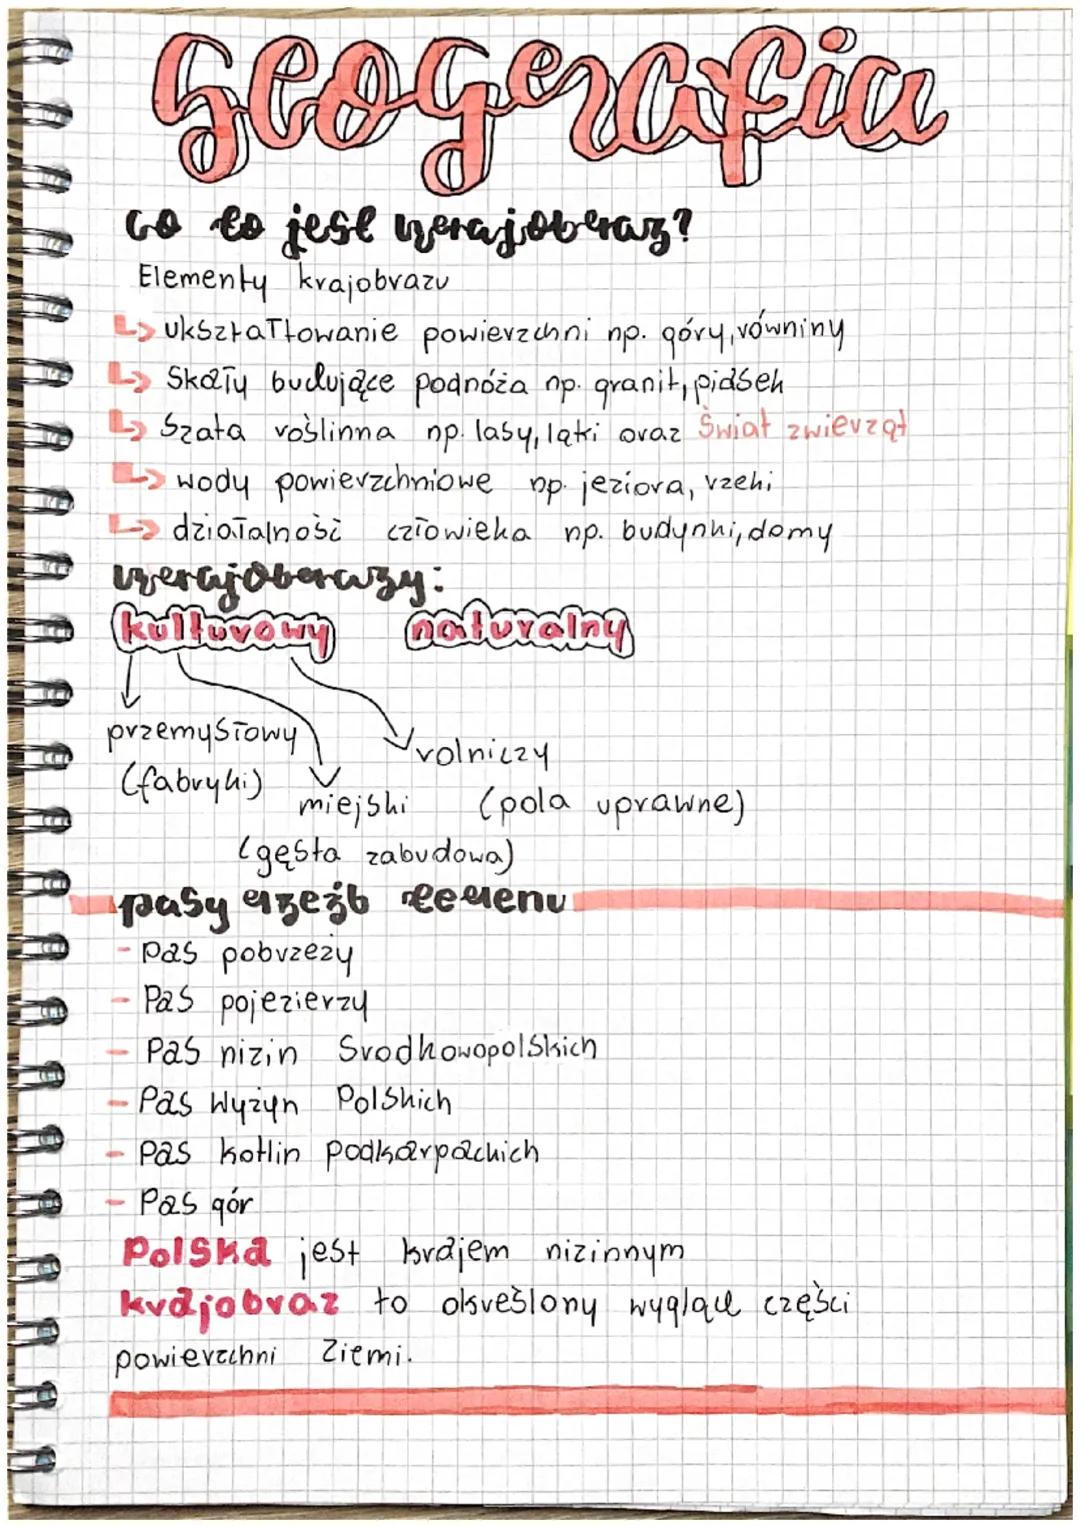 Geografia
Co to jest krajobraz?
Elementy krajobrazu
↳ ukształtowanie powierzchni np. góry, równiny
↳ Skały budujące podnóża np. granit, piasek
↳ Szata roślinna np. lasy, łąki oraz świat zwierząt
↳ wody powierzchniowe np. jeziora, rzeki
↳ działalność człowieka np. budynki, domy
krajobrazy:
kulturowy naturalny
przemysłowy
rolniczy
(fabryki)
miejski (pola uprawne)
(gęsta zabudowa)
pasy rzeźb terenu
- Pas pobrzeży
- Pas pojezierzy
- Pas nizin Srodkowopolskich
- Pas Wyżyn Polskich
- Pas kotlin Podkarpackich
- Pas gór
Polska jest krajem nizinnym
krajobraz to określony wygląd części
powierzchni Ziemi.